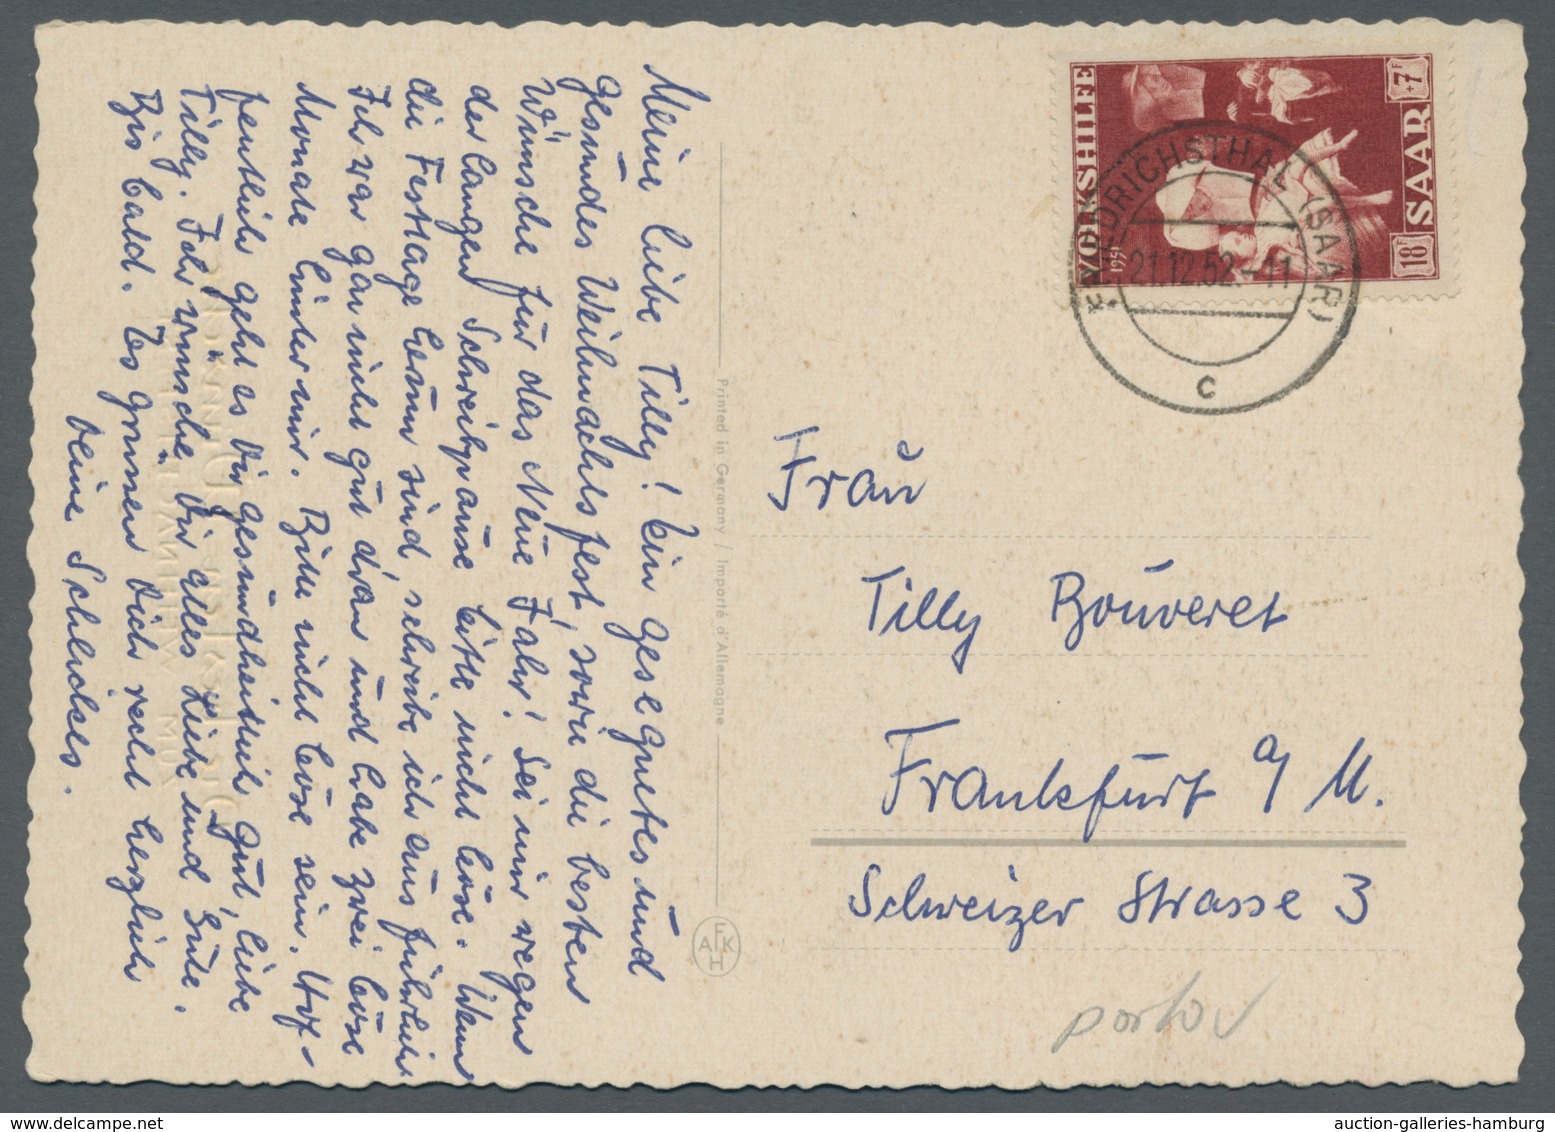 Meine liebe Tilly! Ein gesegnetes und
gesundes Weihnachtsfest, sowie die besten
Wünsche für das Neue Jahr! Sei mir wegen
der langen Schreibpause bitte nicht böse. Wenn
die Festtage herum sind, schreibe ich ausführlich
Ich war gar nicht gut dran und habe zwei böse
Monate hinter mir. Bitte nicht böse sein. Hof-
fentlich geht es Dir gesundheitlich gut, liebe
Tilly. Ich wünsche Dir alles Liebe und Gute.
Bis bald. Es grüssen Dich recht herzlich
Deine
Printed in Germany / Importé d'Allemagne
AFKH
VOLKSHILFE
1951
18F
SAAR
+7F
FRIEDRICHSTHAL (SAAR)
21.12.52.-11
c
Frau
Tilly Bouveret
Frankfurt a/M.
Schweizer Strasse 3
porto
auction-galleries-hamburg